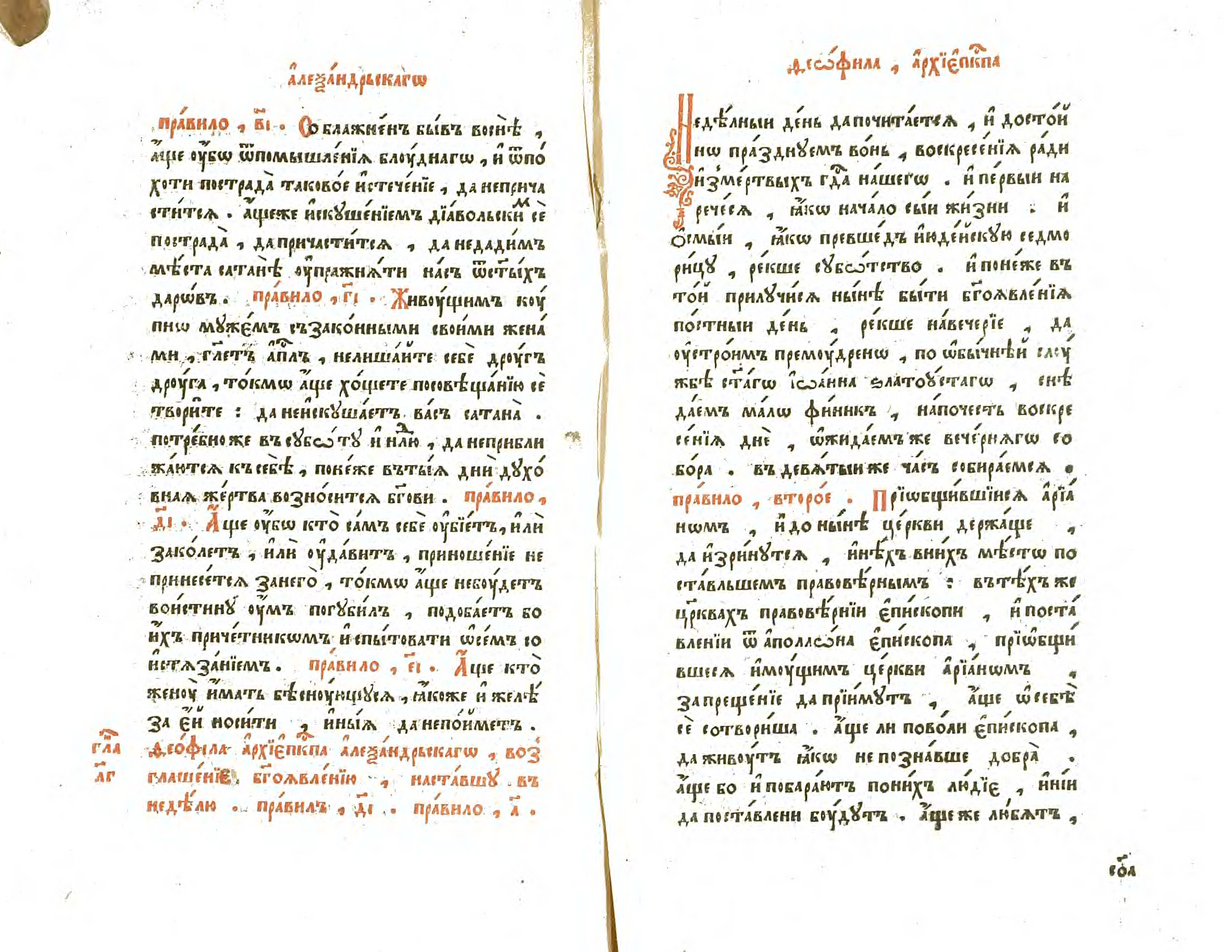 а҆леѯа́ндрьскагѡ
пра́вило , в҃і . Соблажне́нъ бы́въ во снѣ̀ ,
а҆́ще ᲂу҆́бѡ ѿ помышле́нїѧ блоу́днагѡ , и҆ ѿ по́
хоти пострада̀ таково́е и҆стече́нїе , да неприча
сти́тсѧ . а҆́щеже и҆скꙋше́нїемъ дїа́вольским сѐ
пострада̀ , да причасти́тсѧ , да недади́мъ
мѣ́ста сатанѣ̀ ᲂу҆пражнѧ́ти на́съ ѿ ст҃ы́хъ
даро́въ . пра́вило , г҃і . Живоу́щимъ коу́
пнѡ мꙋже́мъ съ зако́нными свои́ми жена́
ми , гл҃етъ а҆п҃лъ , не лиша́йте себѐ дроу́гъ
дроу́га , то́кмѡ а҆́ще хо́щете по совѣща́нїю сѐ
твори́те : да не и҆скꙋша́етъ ва́съ сатана̀ .
потре́бно же въ сꙋбѡ́тꙋ и҆ нлⷣю , да не прибли
жа́ютсѧ къ себѣ̀ , поне́же въ ты́ѧ дни̑ дꙋхо́
внаѧ же́ртва возно́ситсѧ бг҃ови . пра́вило ,
д҃і . А҆́ще ᲂу҆́бо кто̀ са́мъ себѐ ᲂу҆бїе́тъ , и҆лѝ
зако́летъ , и҆лѝ ᲂу҆да́витъ , приноше́нїе не
принесе́тсѧ за него̀ , то́кмѡ а҆́ще не боу́детъ
вои́стинꙋ ᲂу҆́мъ погꙋби́лъ , подоба́етъ бо
и҆́хъ приче́тникѡмъ и҆спы́товати ѡ҆ се́мъ со
и҆стѧза́нїемъ . пра́вило , е҃і . А҆́ще кто̀
женоу̀ и҆́мать бѣсноу́ющꙋсѧ , ꙗ҆́коже и҆ желѣ́
за є҆́й носи́ти , и҆ны́ѧ да не по́йметъ .
гл҃а ѳео́фила а҆рхїе҆п҃кпа а҆леѯа́ндрьскагѡ , воз
л҃г глаше́нїе бг҃оѧвле́нїю , наста́вшꙋ въ
недѣ́лю . пра́вилъ , д҃і . пра́вило , а҃ .
ѳеѡ́фила , а҆рхїе҆п҃кпа
Недѣ́лныи де́нь да почита́етсѧ , и҆ досто́й
нѡ пра́зднꙋемъ во́нь , воскресе́нїѧ ра́ди
и҆з̾ ме́ртвыхъ гдⷭ҇а на́шегѡ . и҆ пе́рвыи на
рече́сѧ , ꙗ҆́кѡ нача́ло сы́и жи́зни : и҆
ѻ҆смы́и , ꙗ҆́кѡ превше́дъ и҆юде́йскꙋю седмо
ри́цꙋ , ре́кше сꙋбѡ́тство . и҆ поне́же въ
то́й прилꙋчи́сѧ ны́нѣ бы́ти бг҃оѧвле́нїѧ
по́стныи де́нь , ре́кше наве́черїе , да
ᲂу҆стро́имъ премоу́дренѡ , по ѡ҆бы́чнѣй слоу́
жбѣ ст҃а́гѡ і҆ѡа́нна златоу́стагѡ , снѣ
да́емъ ма́лѡ фи́никъ , на по́честь воскре
се́нїѧ днѐ , ѡ҆жида́емъ же вече́рнѧгѡ со
бо́ра . въ девѧ́тыи же ча́съ собира́емсѧ .
пра́вило , второ́е . Прїѡбщи́вшїисѧ а҆рїа́
нѡмъ , и҆ до ны́нѣ це́ркви держа́ще ,
да и҆зри́нꙋтсѧ , и҆нѣ́хъ в ни́хъ мѣ́стѡ по
ста́вльшемъ правовѣ́рнымъ : въ тѣ́хъ же
цр҃квахъ правовѣ́рнїи є҆пи́скопи , и҆ поста́
вленїи ѿ а҆поллѡ́на є҆пи́скопа , прїѡбщи́
вшесѧ и҆моу́щимъ це́ркви а҆рїа́нѡмъ ,
запреще́нїе да прїи́мꙋтъ , а҆́ще ѡ҆ себѣ̀
сѐ сотвори́ша . а҆́ще ли по во́ли є҆пи́скопа ,
да живоу́тъ ꙗ҆́кѡ не позна́вше добра̀ .
а҆́ще бо и҆ побара́ютъ по ни́хъ лю́дїе , и҆ні́и
да поста́влени боу́дꙋтъ . а҆́ще же лю́бѧтъ ,
со҃а